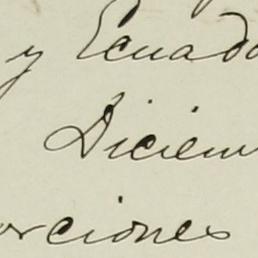 y Ecuado
Diciem
orciones